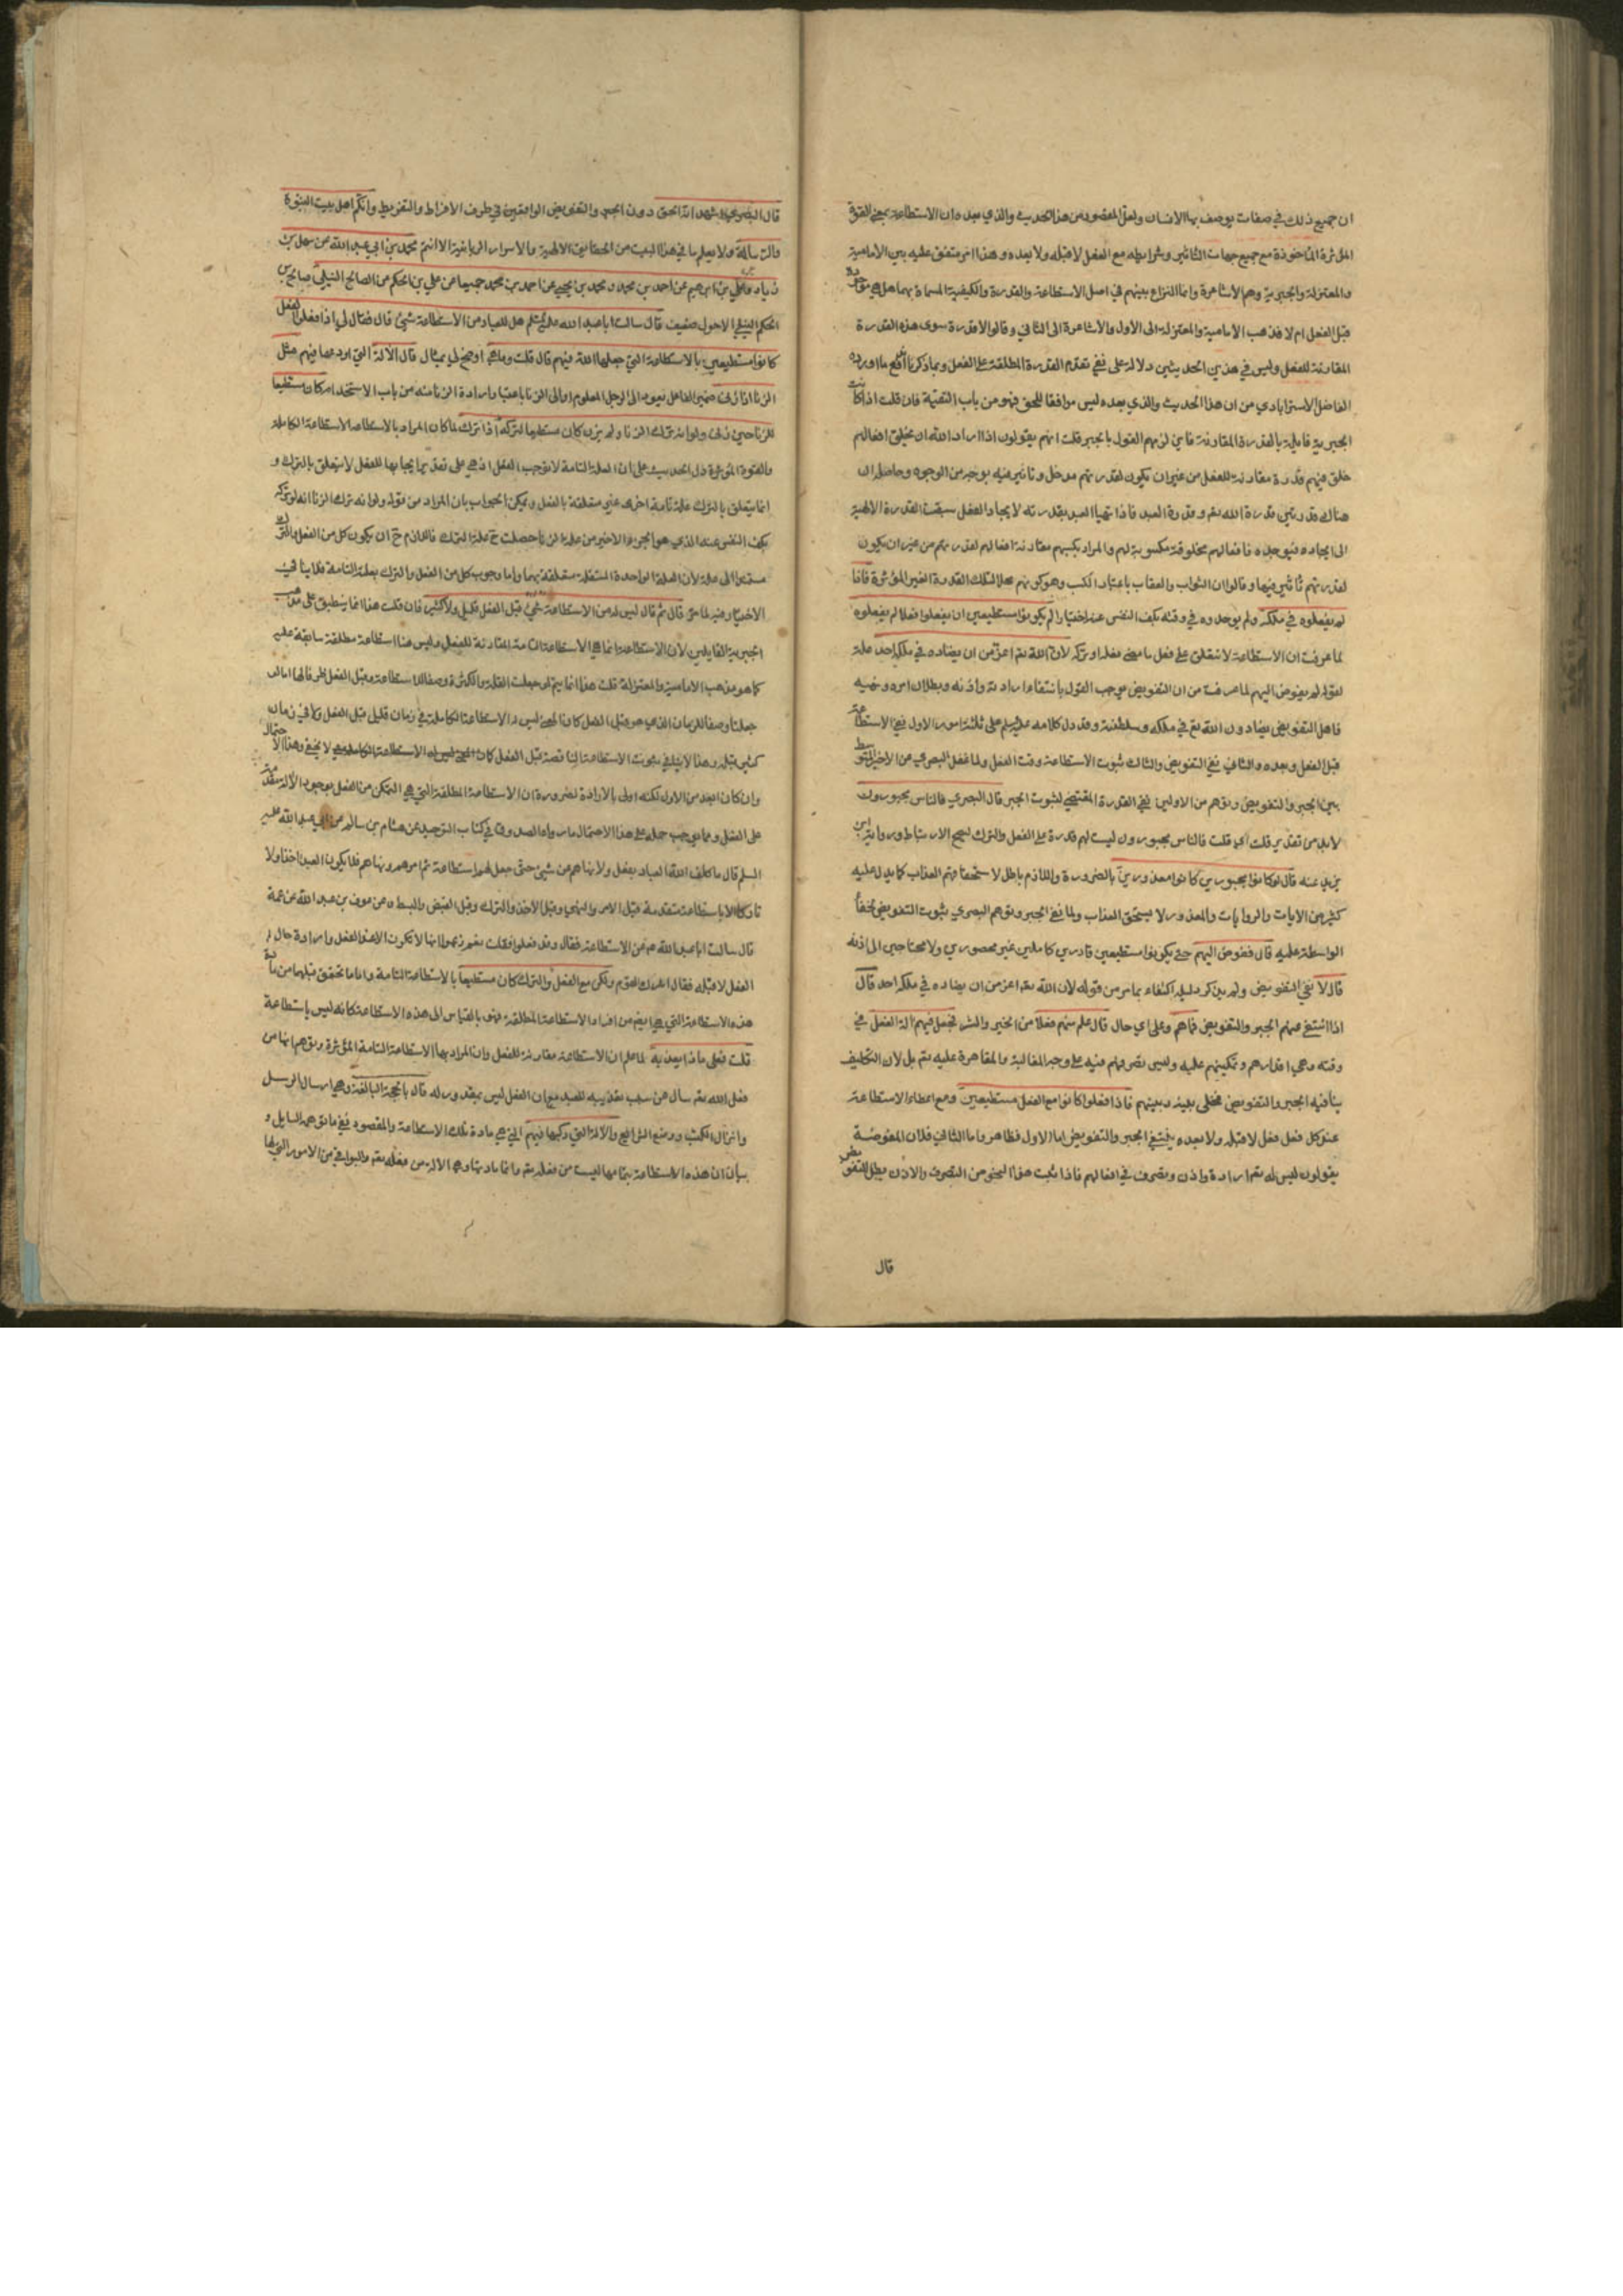 ان جميع ذلك في صفات يوصف بها الانسان ولعل المقصود من هذا الحديث والذي بعده ان الاستطاعة بمعنى القوة
المؤثرة المأخوذة مع جميع جهات التأثير وشرايطه مع الفعل لا قبله ولا بعده وهذا امر متفق عليه بين الامامية
والمعتزلة والجبرية وهم الاشاعرة وانما النزاع بينهم في اصل الاستطاعة والقدرة والكيفية المسماة بهما هل هي موجودة
قبل الفعل ام لا فذهب الامامية والمعتزلة الى الاول والاشاعرة الى الثاني وقالوا لا قدرة سوى هذه القدرة
المقارنة للفعل وليس في هذين الحديثين دلالة على نفي تقدم القدرة المطلقة على الفعل وبما ذكرنا اندفع ما اورده
الفاضل الاسترابادي من ان هذا الحديث والذي بعده ليس موافقا للحق فهو من باب التقية فان قلت اذا كانت
الجبرية قايلة بالقدرة المقارنة فاين لزمهم القول بالجبر قلت انهم يقولون اذا اراد الله ان يخلق افعالهم
خلق فيهم قدرة مقارنة للفعل من غير ان يكون لقدرتهم مدخل وتاثير فيه بوجه من الوجوه وحاصله ان
هناك قدرتين قدرة الله تعم وقدرة العبد فاذا تهيأ العبد بقدرته لايجاد الفعل سبقت القدرة الالهية
الى ايجاده فيوجده فافعالهم مخلوقة مكسوبة لهم والمراد بكسبهم مقارنة افعالهم لقدرتهم من غير ان يكون
لقدرتهم تأثير فيها وقالوا ان الثواب والعقاب باعتبار الكسب وهو كونهم محلا لتلك القدرة الغير المؤثرة فاذا
لم يفعلوه في ملكه ولم يوجدوه في وقته بكف النفس عنه اختيارا لم يكونوا مستطيعين ان يفعلوا فعلا لم يفعلوه
لما عرفت ان الاستطاعة لا تتعلق على فعل ما مضى فعله او تركه لان الله تعم اعز من ان يضاده في ملكه احد علة
لقوله لم يفوض اليهم لما عرفت من ان التفويض موجب القول بانتفاء ارادته واذنه وبطلان امره ونهيه
فاهل التفويض يضادون الله تع في ملكه وسلطنته وقد دل كلامه عليه السلم على ثلثة امور الاول نفي الاستطاعة
قبل الفعل وبعده والثاني نفي التفويض والثالث ثبوت الاستطاعة وقت الفعل ولما غفل البصري من الاخير المتوسط
بين الجبر والتفويض وتوهم من الاولين نفي القدرة المقتضي لثبوت الجبر قال البصري فالناس مجبورون
لابد من تقدير قلت اي قلت فالناس مجبورون ليست لهم قدرة على الفعل والترك ليصح الارتباط ورواية ابن
يزيد عنه قال لو كانوا مجبورين كانوا معذورين بالضرورة واللازم باطل لاستحقاقهم العذاب كما يدل عليه
كثير من الايات والروايات والمعذور لا يستحق العذاب ولما نفى الجبر وتوهم البصري ثبوت التفويض لخفاء
الواسطة عليه قال ففوض اليهم حتى يكونوا مستطيعين قادرين كاملين غير محصورين ولا محتاجين الى اذنه
قال لا نفي التفويض ولم يذكر دليله اكتفاء بما مر من قوله لان الله تعم اعز من ان يضاده في ملكه احد قال
اذا انتفى عنهم الجبر والتفويض فما هم وعلى اي حال قال علم منهم فعلا من الخير والشر فجعل فيهم الة الفعل في
وقته وهي اقدارهم وتمكينهم عليه وليس تصرفهم فيه على وجه المغالبة والمقاهرة عليه تعم بل لان التكليف
ينافيه الجبر والتفويض فخلى بينه وبينهم فاذا فعلوا كانوا مع الفعل مستطيعين ومع اعطاء الاستطاعة
عند كل فعل فعل لا قبله ولا بعده ينتفي الجبر والتفويض اما الاول فظاهر واما الثاني فلان المفوضة
يقولون ليس له تعم ارادة واذن وتصرف في افعالهم فاذا ثبت هذا النحو من التصرف والاذن بطل التفويض
قال
قال البصري اشهد انه الحق دون الجبر والتفويض الواقعين في طرف الافراط والتفريط وانكم اهل بيت النبوة
والرسالة ولا يعلم ما في هذا البيت من الحقايق الالهية والاسرار الربانية الا انتم محمد بن ابي عبد الله عن سهل بن
زياد وعلي بن ابرهيم عن احمد بن محمد ومحمد بن يحيى عن احمد بن محمد جميعا عن علي بن الحكم عن الصالح النيلي صالح بن
الحكم النيلي الاحول ضعيف قال سالت ابا عبد الله عليه السلم هل للعباد من الاستطاعة شئ قال فقال لي اذا فعلوا الفعل
كانوا مستطيعين بالاستطاعة التي جعلها الله فيهم قال قلت وما هي اوضح لي بمثال قال الالة التي اوردها فيهم مثل
الزنا اذا زنى ضمير الفاعل يعود الى الرجل المعلوم او الى الزنا باعتبار ارادة الزنا منه من باب الاستخدام كان مستطيعا
للزنا حين زنى ولو انه ترك الزنا ولم يزن كان مستطيعا لتركه اذا ترك لما كان المراد بالاستطاعة الاستطاعة الكاملة
والقوة المؤثرة دل الحديث على ان العلة التامة لا توجب الفعل اذ هي على تقدير ايجابها للفعل لا يتعلق بالترك و
انما يتعلق بالترك علة تامة اخرى غير متعلقة بالفعل ويمكن الجواب بان المراد من قوله ولو انه ترك الزنا انه لو تركه
بكف النفس عنه الذي هو الجزء الاخير من علة الزنا حصلت ح علة الترك فاللازم ح ان يكون كل من الفعل والترك
مستندا الى علة لان العلة الواحدة المستقلة متعلقة بهما واما وجوب كل من الفعل والترك بعلته التامة فلا ينافي
الاختيار وغير لما مر قال ثم قال ليس له من الاستطاعة شئ قبل الفعل قليل ولا كثير فان قلت هذا انما ينطبق على مذهب
الجبرية القايلين لان الاستطاعة انما هي الاستطاعة التامة المقارنة للفعل وليس هنا استطاعة مطلقة سابقة عليه
كما هو مذهب الامامية والمعتزلة قلت هذا انما يتم لو جعلت القلة والكثرة وصفا للاستطاعة وقبل الفعل ظرفا لها اما لو
جعلتا وصفا للزمان الذي هو قبل الفعل كان المعنى ليس له الاستطاعة الكاملة في زمان قليل قبل الفعل ولا في زمان
كثير قبله وهذا لا ينافي ثبوت الاستطاعة الناقصة قبل الفعل كما لا يخفى وهذا الاحتمال
وان كان ابعد من الاول لكنه اولى بالارادة لضرورة ان الاستطاعة المطلقة التي هي التمكن من الفعل بوجود الالة متقدمة
على الفعل ومما يوجب حمله على هذا الاحتمال ما رواه الصدوق في كتاب التوحيد عن هشام بن سالم عن ابي عبد الله عليه
السلم قال ما كلف الله العباد بفعل ولا نهاهم عن شئ حتى جعل لهم استطاعة ثم امرهم ونهاهم فلا يكون العبد اخذا ولا
تاركا الا باستطاعة متقدمة قبل الامر والنهي وقبل الاخذ والترك وقبل القبض والبسط وعن عوف بن عبد الله عن عمه
قال سالت ابا عبد الله عم عن الاستطاعة فقال وقد فعلوا فقلت نعم زعموا انها لا تكون الا عند الفعل وارادة حال
الفعل لا قبله فقال اشرك القوم ولكن مع الفعل والترك كان مستطيعا بالاستطاعة التامة واما ما تحقق قبلهما من
هذه الاستطاعة التي هي ايضا من افراد الاستطاعة المطلقة فهو بالقياس الى هذه الاستطاعة كانه ليس باستطاعة
قلت فعلى ماذا يعذبه لما علم ان الاستطاعة مقارنة للفعل وان المراد بها الاستطاعة التامة المؤثرة وتوهم انها من
فعل الله تعم سال عن سبب تعذيبه للعبد مع ان الفعل ليس بمقدور له قال بالحجة البالغة وهي ارسال الرسل
وانزال الكتب ووضع الشرائع والالة التي ركبها فيهم التي هي مادة تلك الاستطاعة والمقصود نفي ما توهمه السايل و
بيان ان هذه الاستطاعة بتمامها ليست من فعله تعم وانما مادتها وهي الالة من فعله تعم والبواقي من الامور التي لها